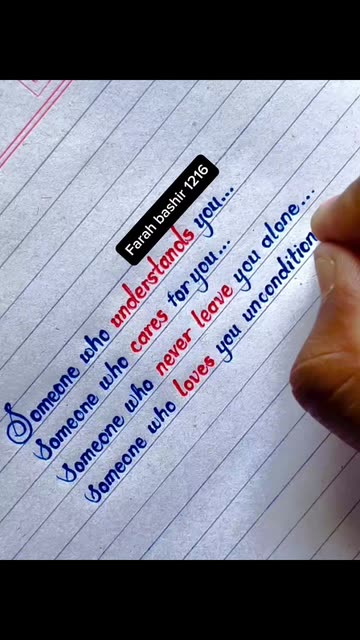 Farah bashir 1216
Someone who understands you...
Someone who cares for you...
Someone who never leave you alone...
Someone who loves you uncondition